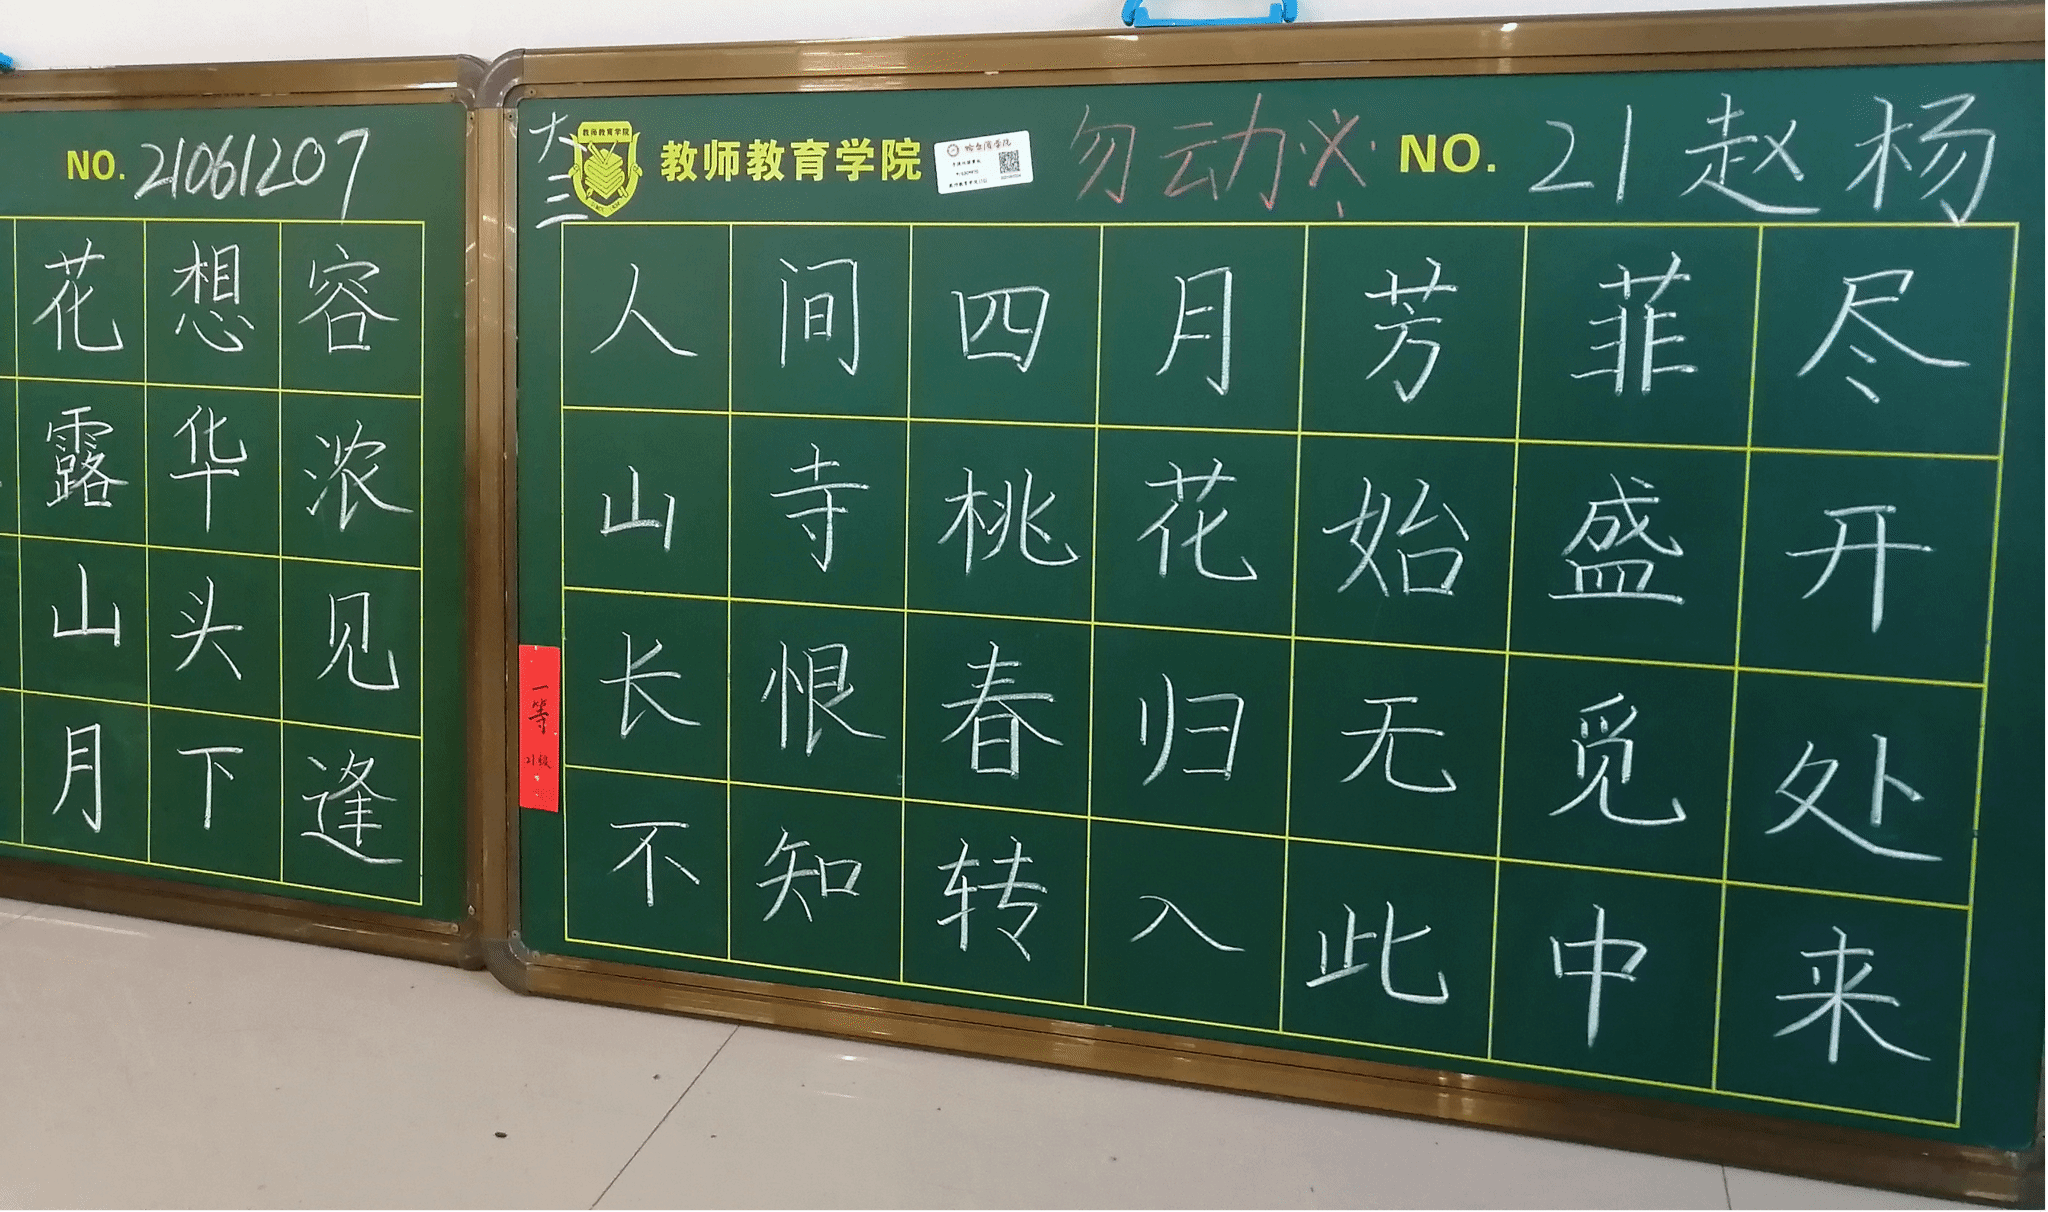 NO. 21061207
花想容
露华浓
山头见
月下逢
大三
教师教育学院
教师教育学院
哈尔滨学院
勿动
NO. 21赵杨
人间四月芳菲尽
山寺桃花始盛开
长恨春归无觅处
不知转入此中来
一等
21级